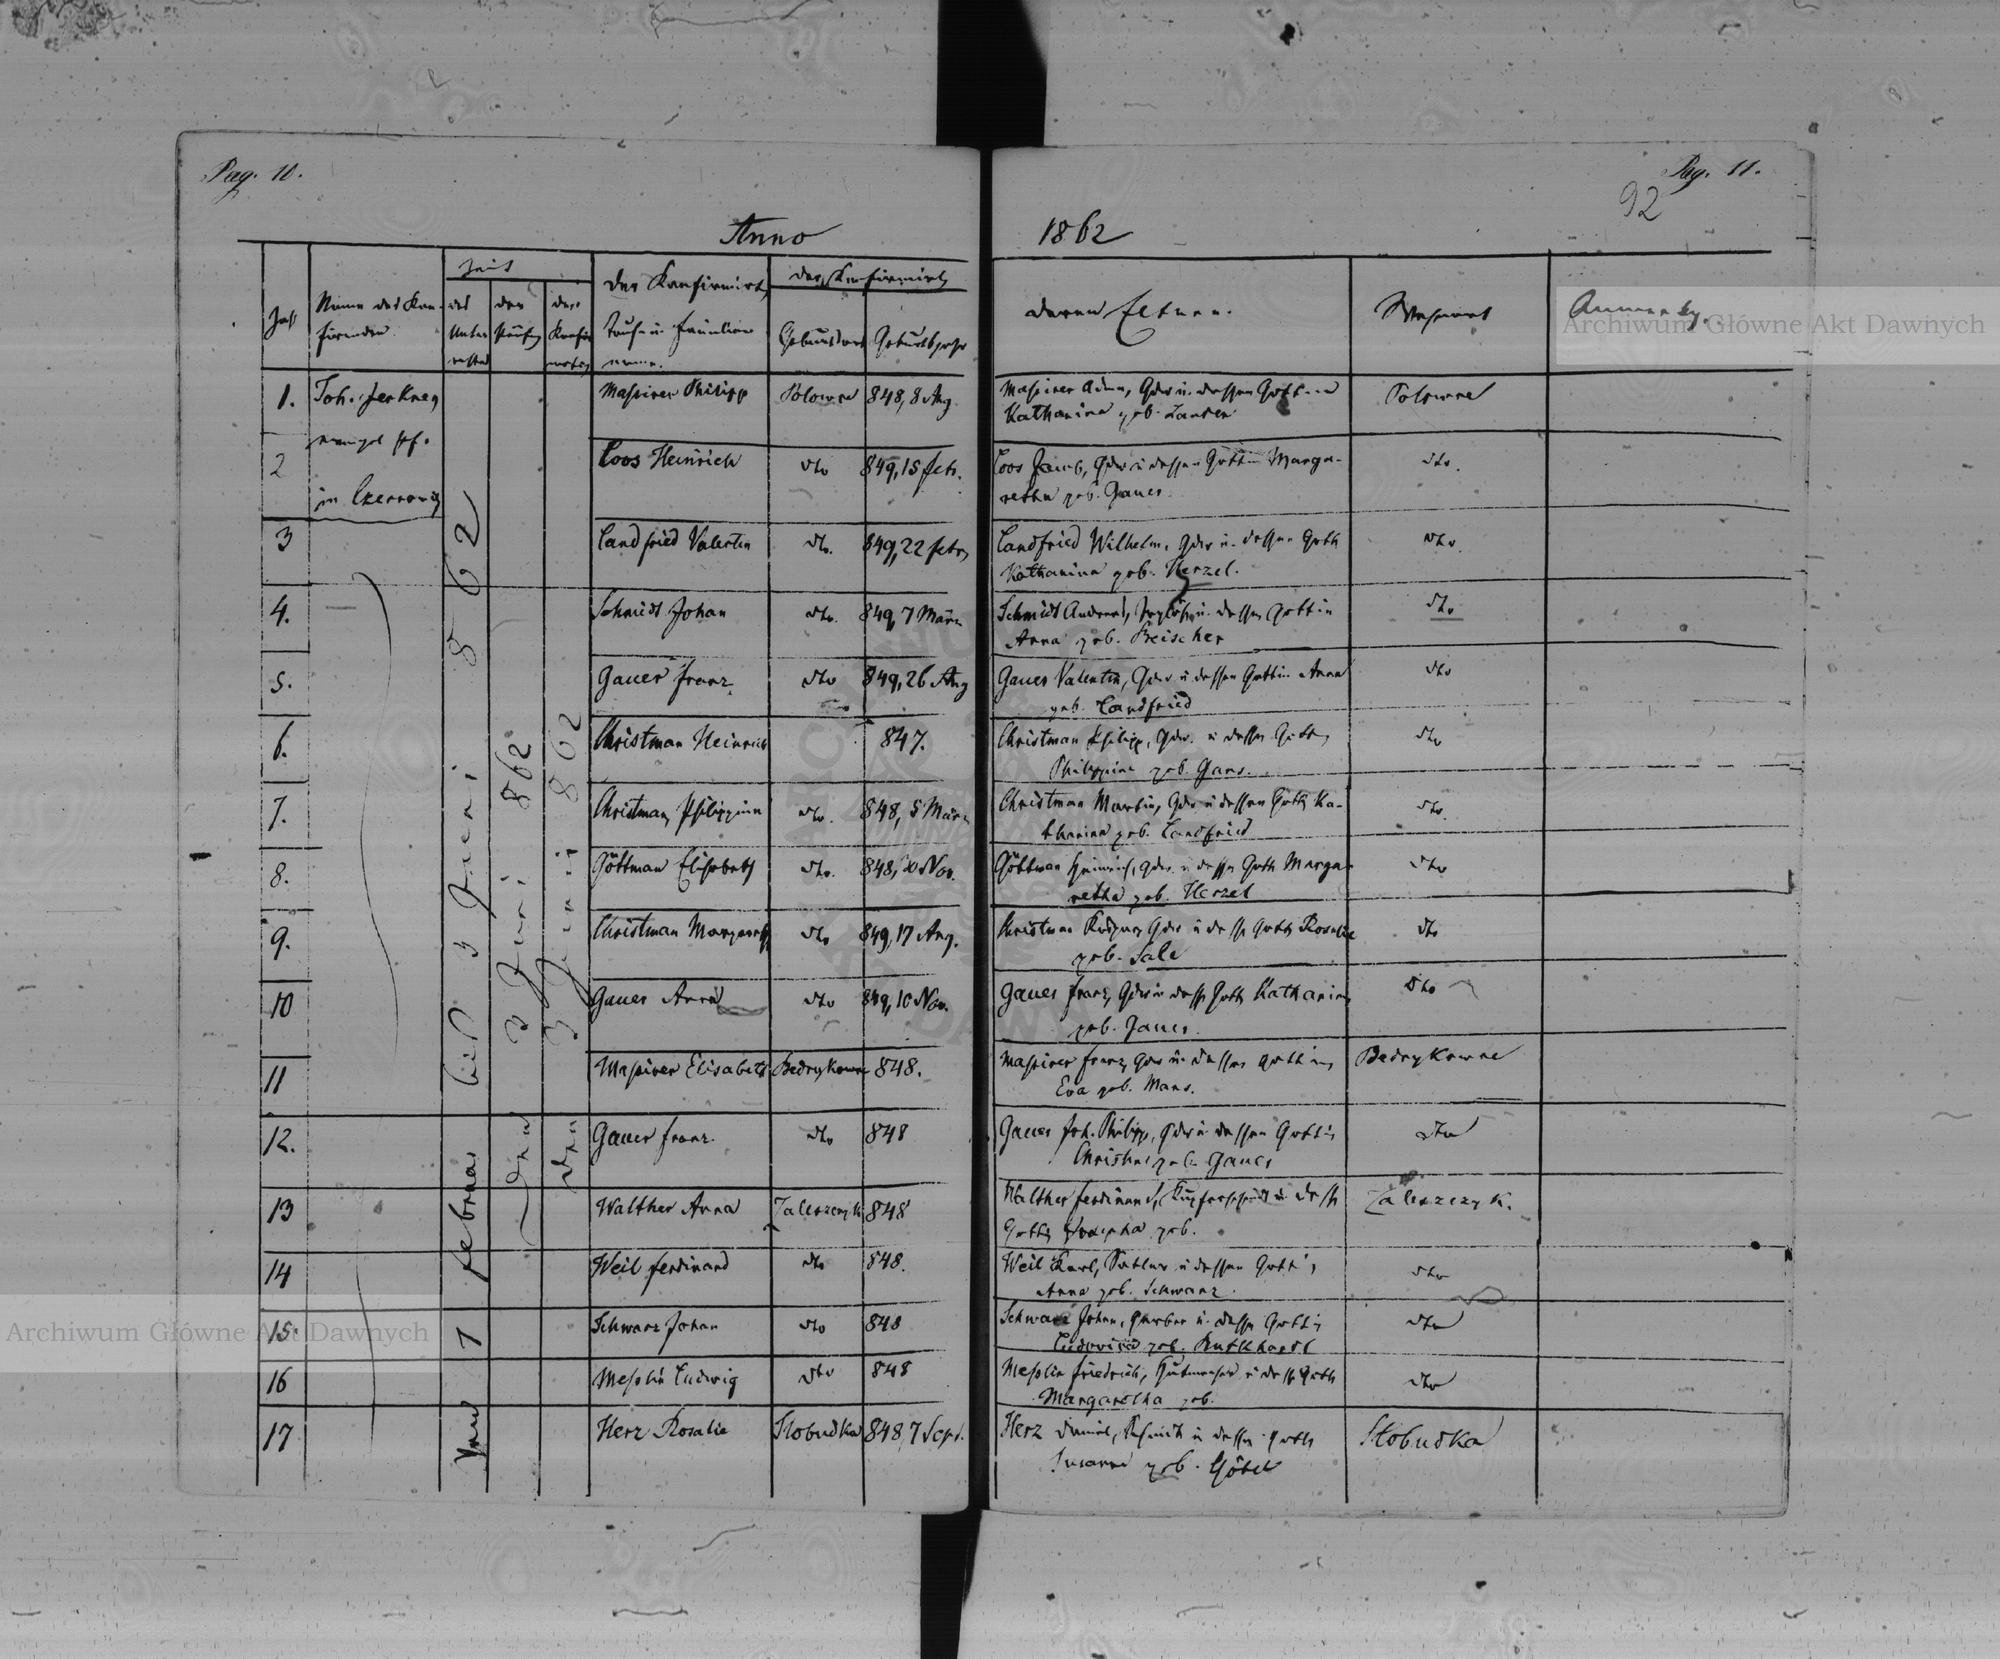 Pag. 10.
Pag. 11.
92
Anno 1862
Zeit
Zahl
Name des Kon-
firmirenden
des Unter-
richts
der Prüfung
der Konfir-
mation
Des Konfirmirt.
Tauf- u. Familien
name.
des Konfirmirt.
Geburtsort
Geburtsjahr
deren Eltern.
Wohnort
Anmerkg.
Vom 7 Februar bis 3 Juni 862
den 3 Juni 862
den 3 Juni 862
1. Joh. Polowce 848, 8 Aug
Philipp
Adam, u. dessen Gattin
Katharina geb.
Polowce
evangel. Pf.
in
2 Loos Heinrich dto 849, 15 Feb.
Loos Jacob, u dessen Gattin Marga-
retha geb. Gauer
dto.
3 Landfried Valentin dto. 849, 22 Feb.
Landfried Wilhelm, u. dessen Gatt.
Katharina geb. Herzel.
dto.
4. Schmidt Johan dto. 849, 7 März
Schmidt Andreas, u. dessen Gattin
Anna geb.
dto
5. Gauer Franz dto 849, 26 Aug
Gauer Valentin, u dessen Gattin Anna
geb. Landfried
dto
6. Christman Heinrich 847.
Christman Philipp, u dessen Gattin
Philippine geb. Gans.
dto
7. Christman Philippine dto. 848, 5 März
Christman Martin, u dessen Gattin Ka-
tharina geb. Landfried
dto.
8. Göttman Elisabeth dto. 848, 30 Nov.
Göttman Heinrich, u dessen Gatt. Marga-
retha geb. Herzel
dto
9. Christman Margareth. dto 849, 17 Aug.
Christman u dessen Gattin Rosalie
geb. Sale
dto
10 Gauer Anna dto 849, 10 Nov.
Gauer Franz, u dessen Gattin Katharina
geb. Gauer.
dto
11 Elisabeth Bedrykowce 848.
Franz u. dessen Gattin
Eva geb. Mans.
Bedrykowce
12. Gauer Franz. dto 848
Gauer Joh. Philipp, u. dessen Gattin
Christina geb. Gauer
dto
13 Walther Anna Zaleszczyk 848
Walther Ferdinand, Kupferschmidt u. dessen
Gattin geb.
Zaleszczyk.
14 Weil Ferdinand dto 848.
Weil Karl, Sattler u dessen Gattin
Anna geb. Schwarz.
dto
15. Schwarz Johan dto 848
Schwarz Johan, Gerber u. dessen Gattin
Ludovica geb.
dto
16 Ludwig dto 848
Friedrich, Hutmacher u dessen Gattin
Margaretha geb.
dto
17 Herz Rosalie Slobudka 848, 7 Sept.
Herz Daniel, Schmidt u dessen Gattin
Susanna geb. Göbel
Slobudka
Archiwum Główne Akt Dawnych
Archiwum Główne Akt Dawnych